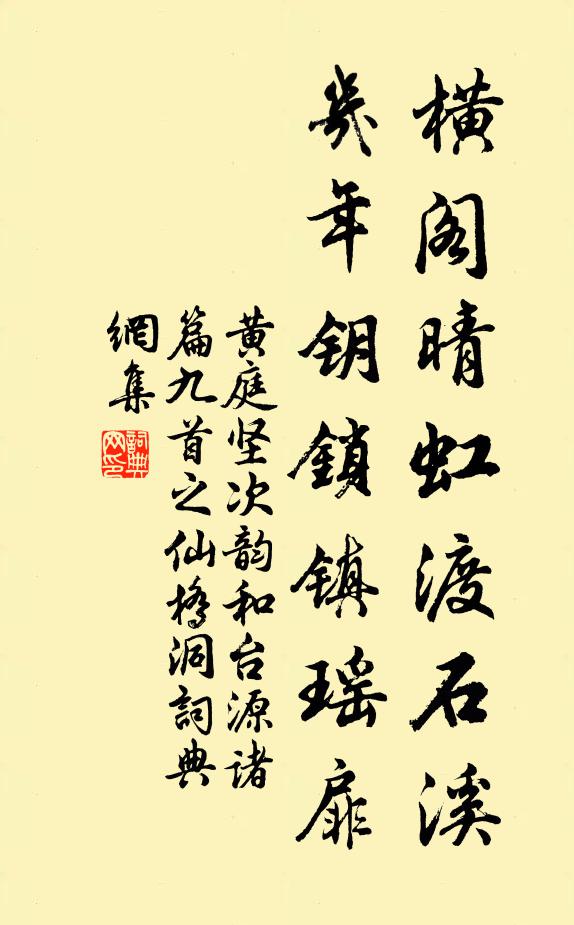 橫阁晴虹渡石溪
幾年钥鎖镇瑶扉
黄庭坚次韵和台源诸
篇九首之仙橋洞詞典
網集
詞典
网印